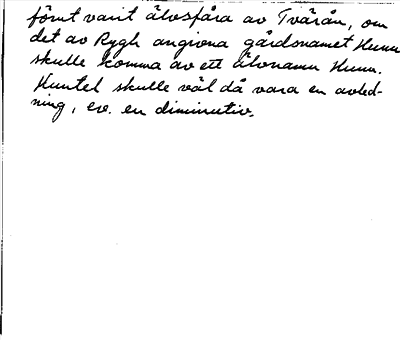 förut varit älvsfåra av Tvärån, om
det av Rygh angivna gårdsnamnet Hunn
skulle komma av ett älvnamn Hunn.
Huntel skulle väl då vara en avled-
ning, ev. en diminutiv.